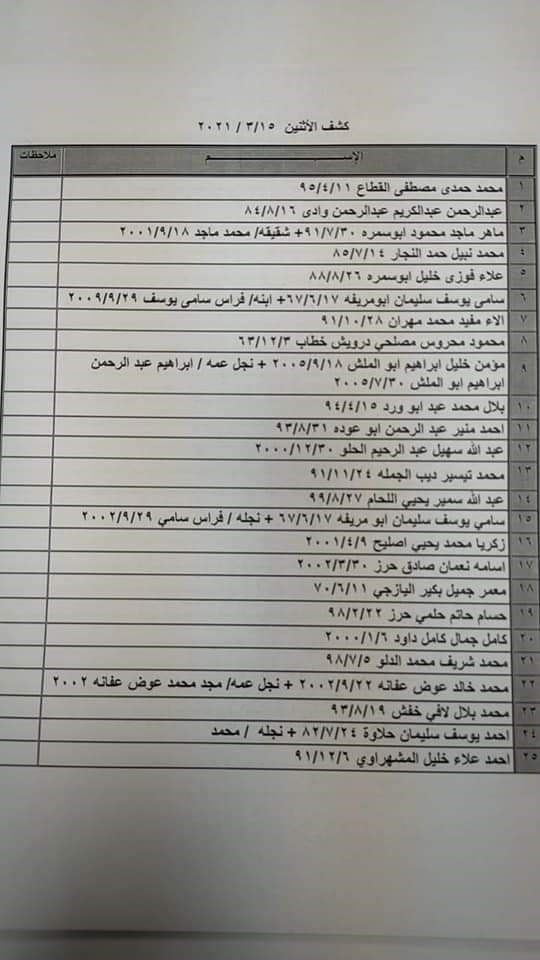 كشف الأثنين ٣/١٥ / ٢٠٢١
م الإســـم ملاحظات
١ محمد حمدى مصطفى القطاع ٩٥/٤/١١
٢ عبدالرحمن عبدالكريم عبدالرحمن وادى ٨٤/٨/١٦
٣ ماهر ماجد محمود ابوسمره ٩١/٧/٣٠+ شقيقه/ محمد ماجد ٢٠٠١/٩/١٨
٤ محمد نبيل حمد النجار ٨٥/٧/١٤
٥ علاء فوزى خليل ابوسمره ٨٨/٨/٢٦
٦ سامى يوسف سليمان ابومريفه ٦٧/٦/١٧+ ابنه/ فراس سامى يوسف ٢٠٠٩/٩/٢٩
٧ الاء مفيد محمد مهران ٩١/١٠/٢٨
٨ محمود محروس مصلحي درويش خطاب ٦٣/١٢/٣
٩ مؤمن خليل ابراهيم ابو الملش ٢٠٠٥/٩/١٨ + نجل عمه / ابراهيم عبد الرحمن
ابراهيم ابو الملش ٢٠٠٥/٧/٣٠
١٠ بلال محمد عبد ابو ورد ٩٤/٤/١٥
١١ احمد منير عبد الرحمن ابو عوده ٩٣/٨/٣١
١٢ عبد الله سهيل عبد الرحيم الحلو ٢٠٠٠/١٢/٣٠
١٣ محمد تيسير ديب الجمله ٩١/١١/٢٤
١٤ عبد الله سمير يحيي اللحام ٩٩/٨/٢٧
١٥ سامي يوسف سليمان ابو مريفه ٦٧/٦/١٧ + نجله / فراس سامي ٢٠٠٢/٩/٢٩
١٦ زكريا محمد يحيي اصليح ٢٠٠١/٤/٩
١٧ اسامه نعمان صادق حرز ٢٠٠٢/٣/٣٠
١٨ معمر جميل بكير اليازجي ٧٠/٦/١١
١٩ حسام حاتم حلمي حرز ٩٨/٢/٢٢
٢٠ كامل جمال كامل داود ٢٠٠٠/١/٦
٢١ محمد شريف محمد الدلو ٩٨/٧/٥
٢٢ محمد خالد عوض عفانه ٢٠٠٢/٩/٢٢ + نجل عمه/ مجد محمد عوض عفانه ٢٠٠٢
٢٣ محمد بلال لافي خفش ٩٣/٨/١٩
٢٤ احمد يوسف سليمان حلاوة ٨٢/٧/٢٤ + نجله / محمد
٢٥ احمد علاء خليل المشهراوي ٩١/١٢/٦